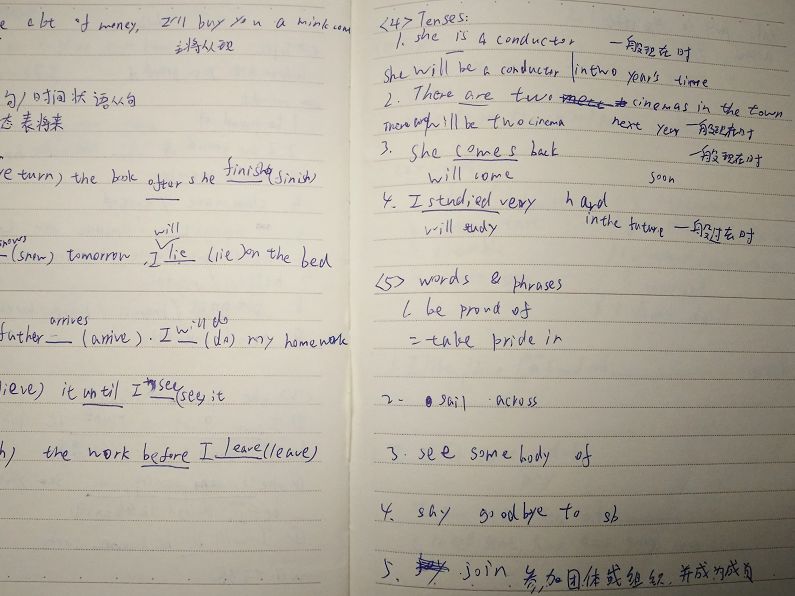 e a lot of money, I'll buy you a mink coat
主将从现
句/时间状语从句
态表将来
return) the book after she finishes (finish)
snows (snow) tomorrow, I will lie (lie) on the bed
father arrives (arrive). I will do (do) my homework
lieve) it until I see (see) it
h) the work before I leave (leave)
<4> Tenses:
1. she is a conductor 一般现在时
She will be a conductor in two year's time
2. There are two cinemas in the town
There will be two cinema next year 一般现在时
3. She comes back 一般现在时
will come soon
4. I studied very hard
will study in the future 一般过去时
<5> words & phrases
1. be proud of
= take pride in
2. sail across
3. see somebody of
4. say goodbye to sb
5. join 参加团体或组织，并成为成员